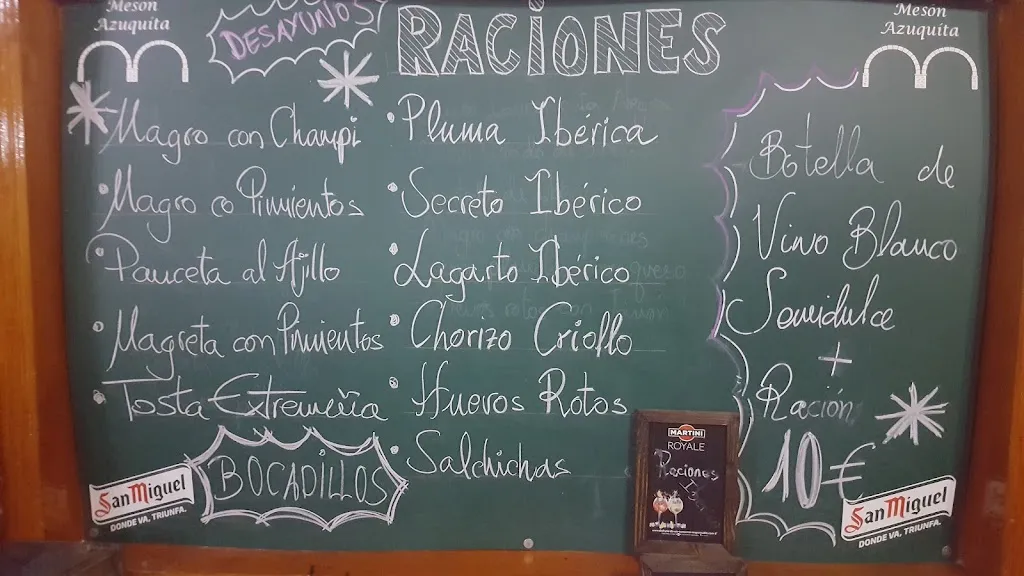 Mesón
Azuquita
DESAYUNOS
RACIONES
Mesón
Azuquita
Magro con Champi
Magro co Pimientos
Panceta al Ajillo
Magreta con Pimientos
Tosta Extremeña
BOCADILLOS
Pluma Ibérica
Secreto Ibérico
Lagarto Ibérico
Chorizo Criollo
Huevos Rotos
Salchichas
Botella de
Vino Blanco
Semidulce
+
Ración
10€
San Miguel
DONDE VA, TRIUNFA.
MARTINI
ROYALE
Raciones
San Miguel
DONDE VA, TRIUNFA.